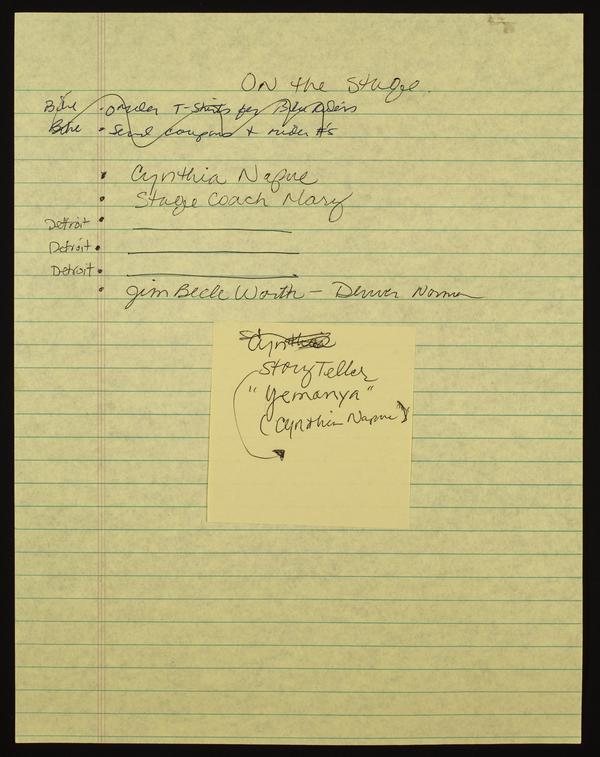 On the Stage.
Bike • order T-Shirts for Bike Riders
Bike • Send coupons + rider #'s
• Cynthia Napue
• Stage Coach Mary
Detroit •
Detroit •
Detroit •
• Jim Beck Worth - Denver Norman
Cynthia
Story Teller
"Yemanya"
(Cynthia Napue)